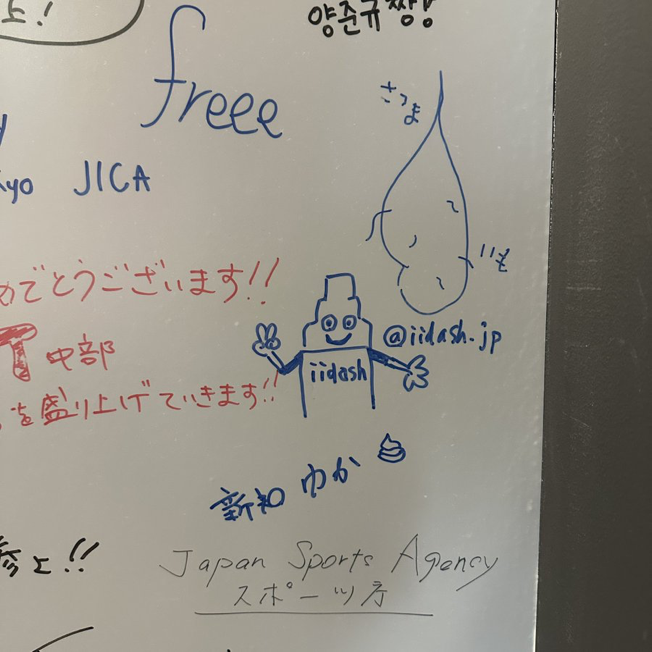 양준규짱
freee
さつま
JICA
いも
めでとうございます!!
@iidash.jp
中部
iidash
を盛り上げていきます!!
新和 ゆか
参上!!
Japan Sports Agency
スポーツ庁